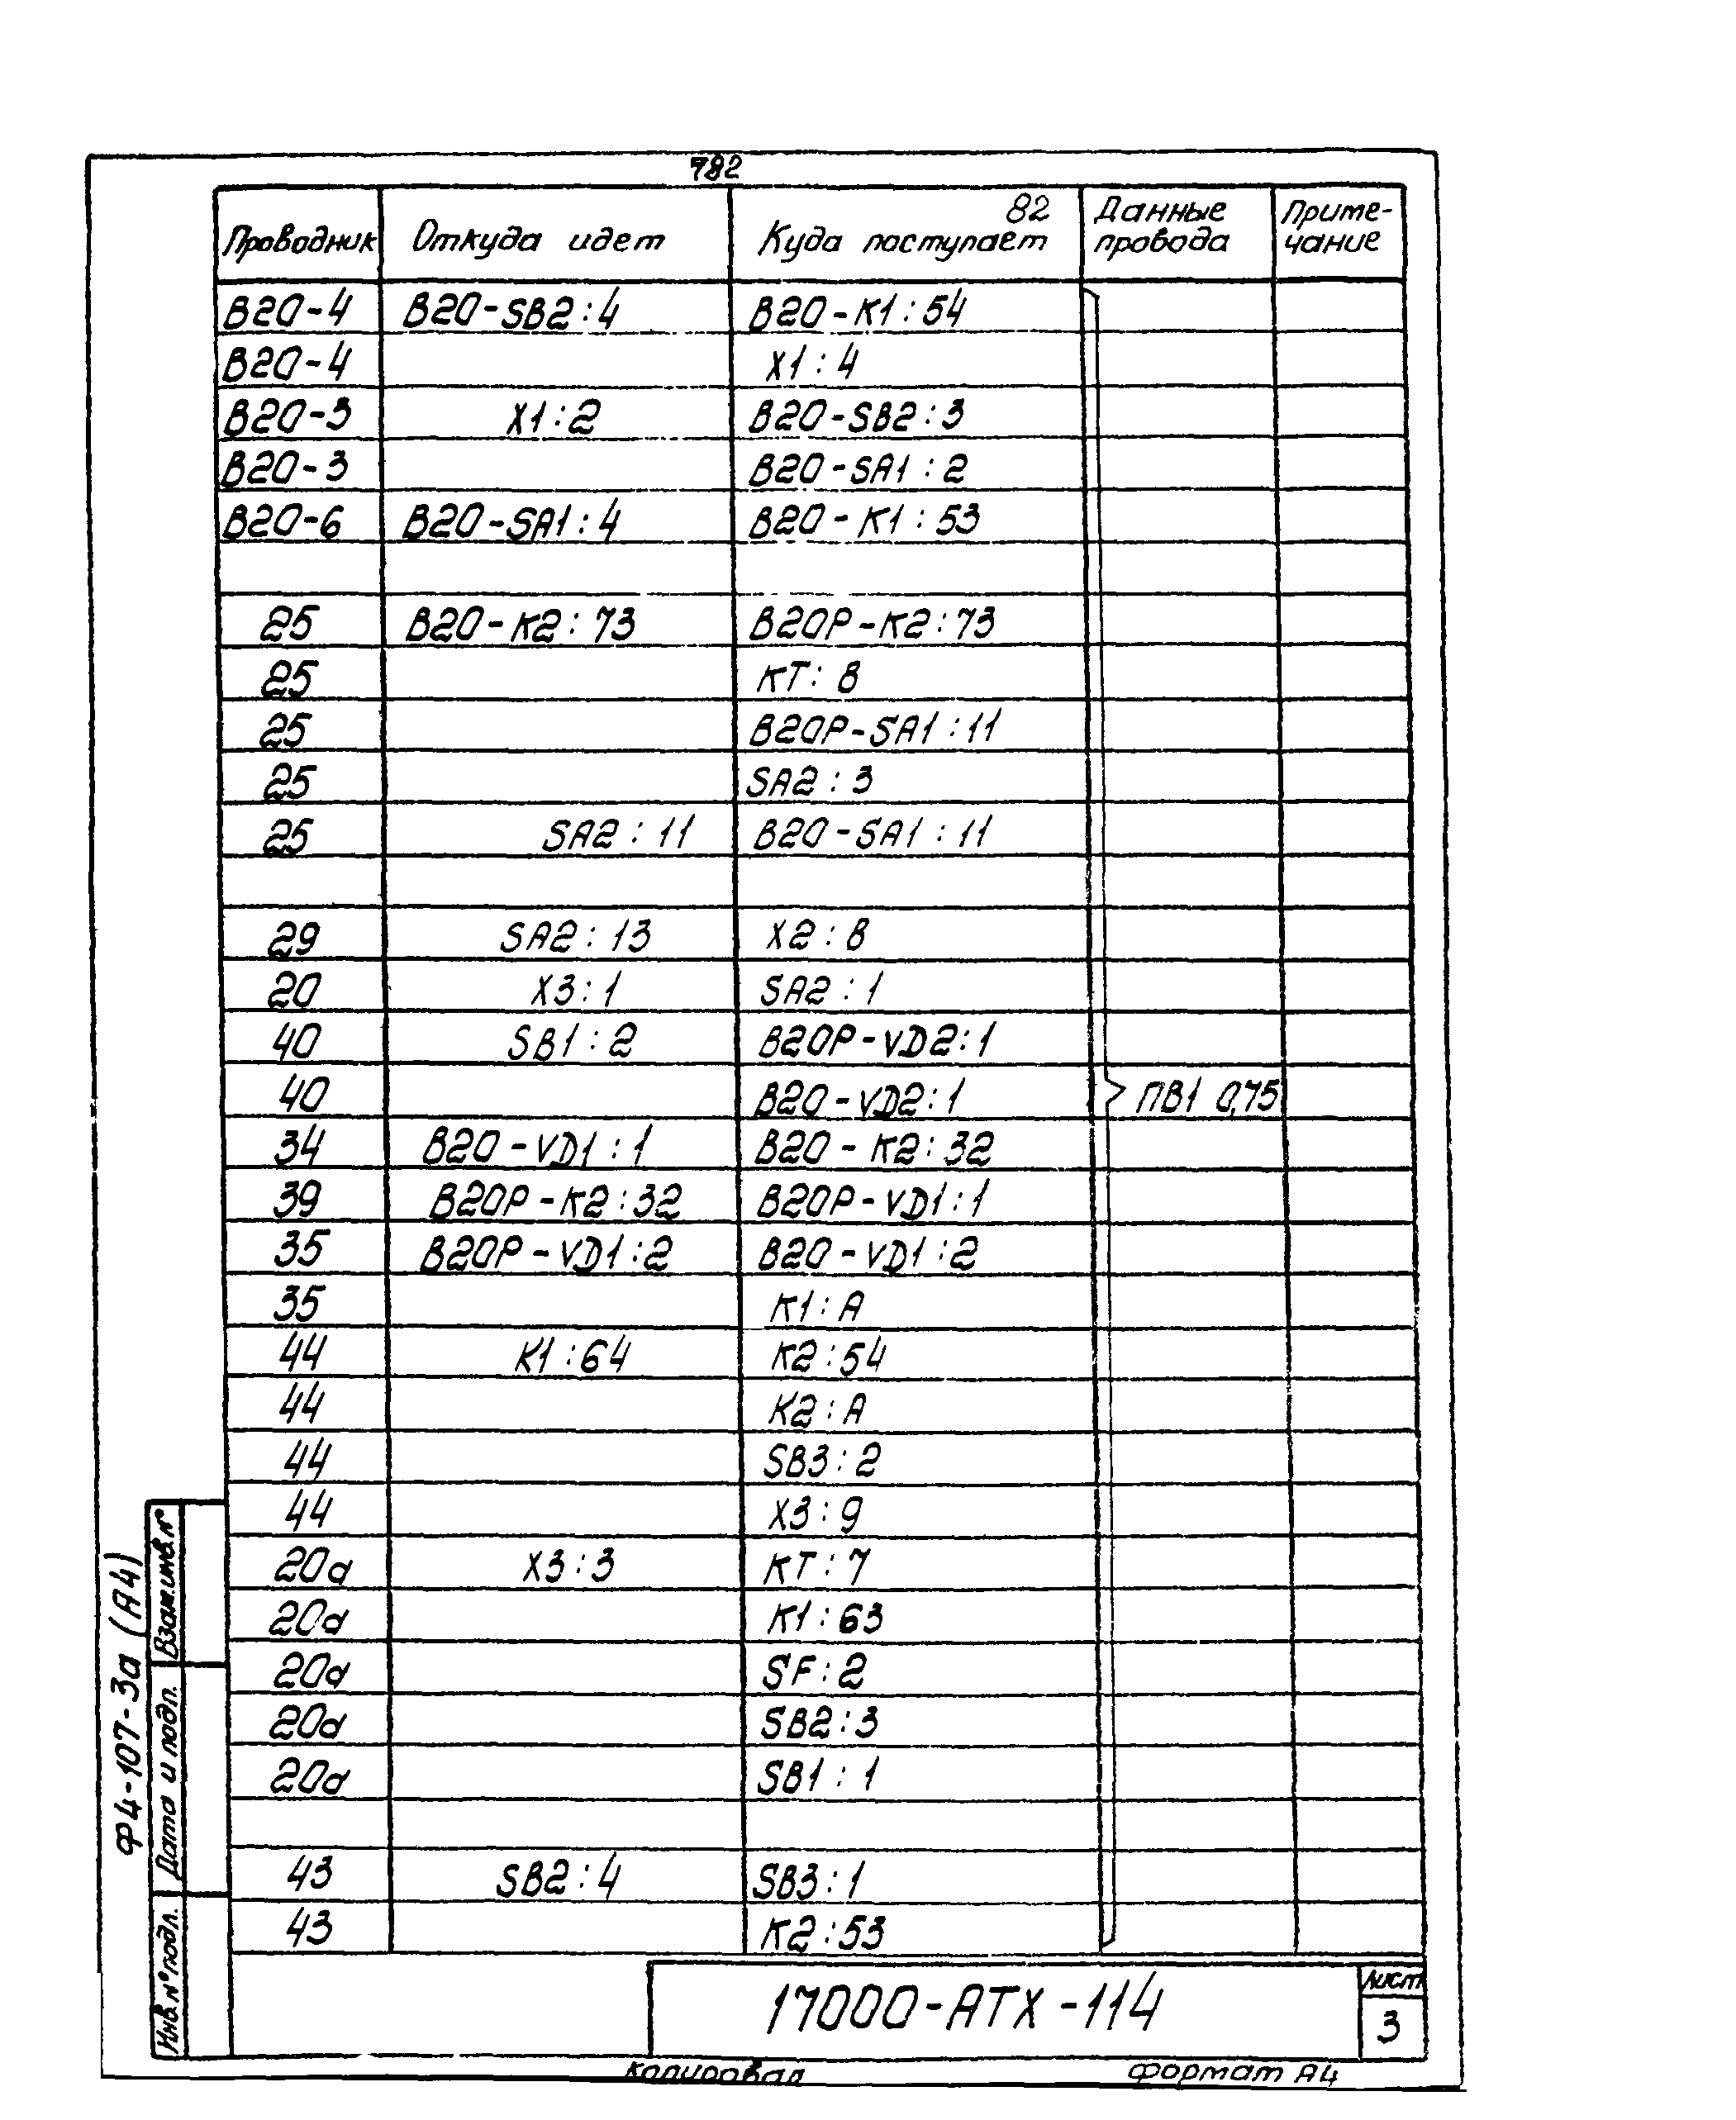 782
82
Проводник Откуда идет Куда поступает Данные провода Приме-чание
В20-4 В20-SB2:4 В20-К1:54
В20-4 Х1:4
В20-3 Х1:2 В20-SB2:3
В20-3 В20-SA1:2
В20-6 В20-SA1:4 В20-К1:53
25 В20-К2:73 В20Р-К2:73
25 КТ:8
25 В20Р-SA1:11
25 SA2:3
25 SA2:11 В20-SA1:11
29 SA2:13 Х2:8
20 Х3:1 SA2:1
40 SB1:2 В20Р-VD2:1
40 В20-VD2:1 ПВ1 0,75
34 В20-VD1:1 В20-К2:32
39 В20Р-К2:32 В20Р-VD1:1
35 В20Р-VD1:2 В20-VD1:2
35 К1:А
44 К1:64 К2:54
44 К2:А
44 SB3:2
44 Х3:9
20а Х3:3 КТ:7
20а К1:63
20а SF:2
20а SB2:3
20а SB1:1
43 SB2:4 SB3:1
43 К2:53
Ф4-107-3а (А4)
Взам.инв.№
Дата и подп.
Инв.№подл.
17000-АТХ-114
Лист
3
копировал формат А4